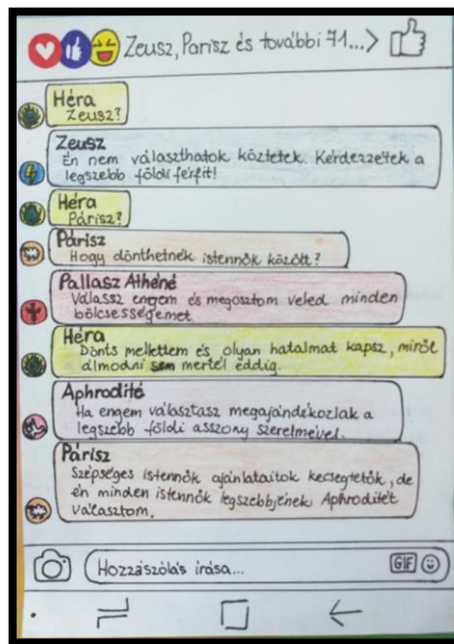 Zeusz, Parisz és további 71...>
Héra
Zeusz?
Zeusz
Én nem választhatok köztetek. Kérdezzétek a
legszebb földi férfit!
Héra
Párisz?
Párisz
Hogy dönthetnék istennők között?
Pallasz Athéné
Válassz engem és megosztom veled minden
bölcsességemet.
Héra
Dönts mellettem és olyan hatalmat kapsz, miről
álmodni sem mertél eddig.
Aphrodité
Ha engem választasz megajándékozlak a
legszebb földi asszony szerelmével.
Párisz
Szépséges istennők ajánlataitok kecsegtetők, de
én minden istennők legszebbjének Aphroditét
választom.
Hozzászólás írása...
GIF